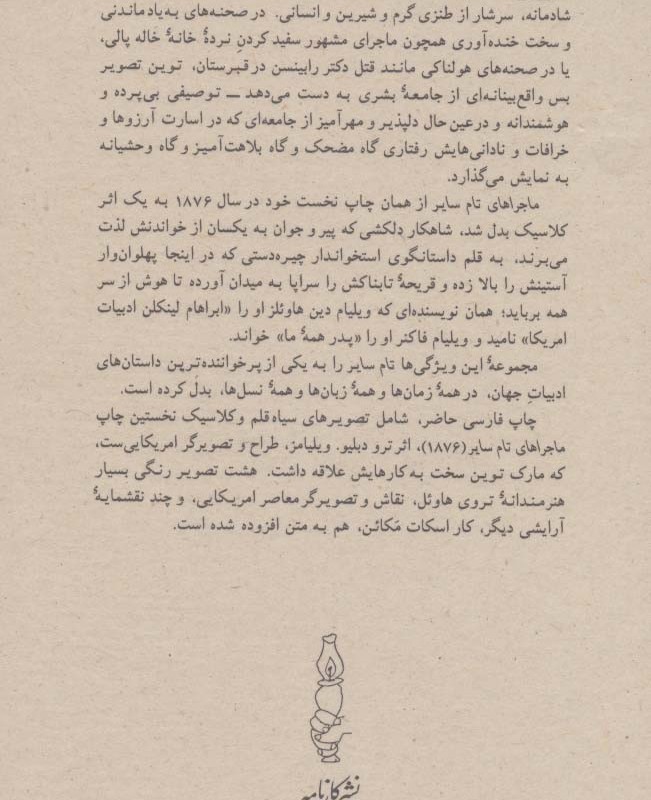 شادمانه، سرشار از طنزی گرم و شیرین و انسانی. در صحنه‌های به‌یادماندنی
و سخت خنده‌آوری همچون ماجرای مشهور سفیدکردنِ نردهٔ خانهٔ خاله پالی،
یا در صحنه‌های هولناکی مانند قتل دکتر رابینسن در قبرستان، توین تصویر
بس واقع‌بینانه‌ای از جامعهٔ بشری به دست می‌دهد ــ توصیفی بی‌پرده و
هوشمندانه و درعین‌حال دلپذیر و مهرآمیز از جامعه‌ای که در اسارت آرزوها و
خرافات و نادانی‌هایش رفتاری گاه مضحک و گاه بلاهت‌آمیز و گاه وحشیانه
به نمایش می‌گذارد.
ماجراهای تام سایر از همان چاپ نخست خود در سال ۱۸۷۶ به یک اثر
کلاسیک بدل شد، شاهکار دلکشی که پیر و جوان به یکسان از خواندنش لذت
می‌برند، به قلم داستانگوی استخواندار چیره‌دستی که در اینجا پهلوان‌وار
آستینش را بالا زده و قریحهٔ تابناکش را سراپا به میدان آورده تا هوش از سر
همه برباید؛ همان نویسنده‌ای که ویلیام دین هاوئلز او را «ابراهام لینکلن ادبیات
امریکا» نامید و ویلیام فاکنر او را «پدر همهٔ ما» خواند.
مجموعهٔ این ویژگی‌ها تام سایر را به یکی از پرخواننده‌ترین داستان‌های
ادبیاتِ جهان، در همهٔ زمان‌ها و همهٔ زبان‌ها و همهٔ نسل‌ها، بدل کرده است.
چاپ فارسی حاضر، شامل تصویرهای سیاه‌قلم و کلاسیک نخستین چاپ
ماجراهای تام سایر (۱۸۷۶)، اثر ترو دبلیو. ویلیامز، طراح و تصویرگر امریکایی‌ست،
که مارک توین سخت به کارهایش علاقه داشت. هشت تصویر رنگی بسیار
هنرمندانهٔ تروی هاوئل، نقاش و تصویرگر معاصر امریکایی، و چند نقشمایهٔ
آرایشی دیگر، کار اسکات مَکائن، هم به متن افزوده شده است.
نشر کارنامه